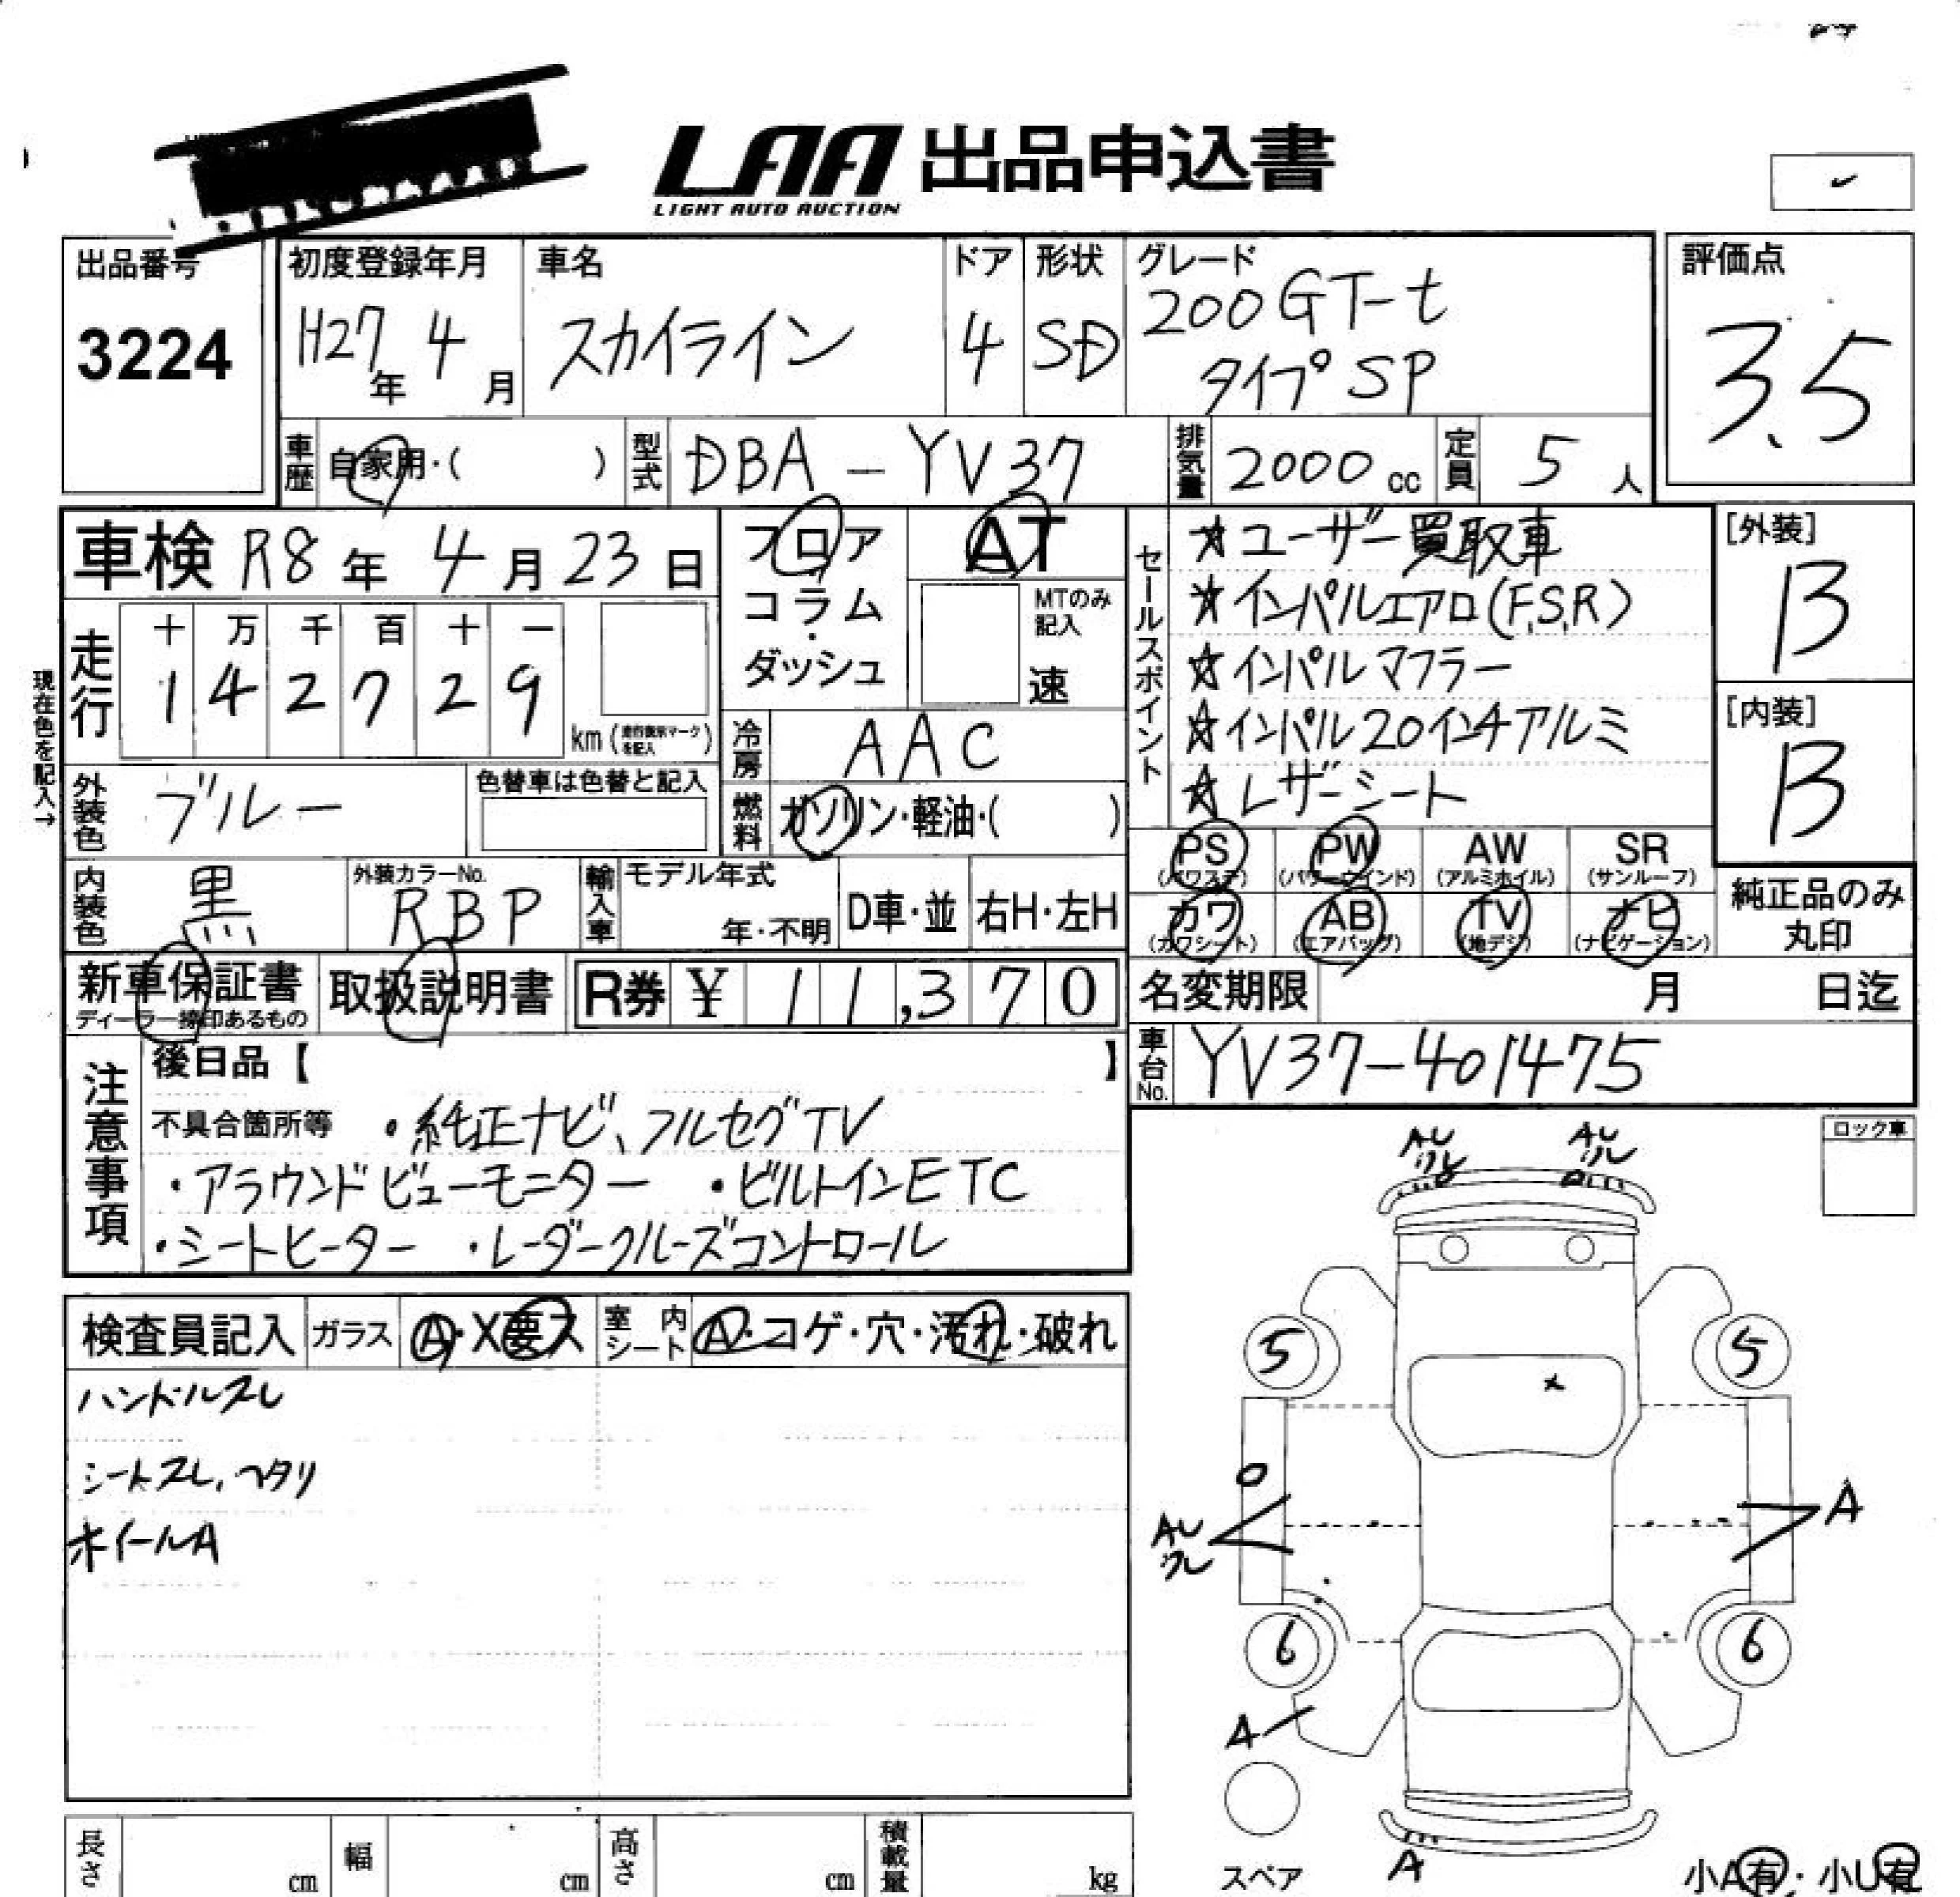 LAA 出品申込書
LIGHT AUTO AUCTION
出品番号
3224
初度登録年月
H27年 4月
車名
スカイライン
ドア
4
形状
SD
グレード
200GT-t
タイプSP
評価点
3.5
車歴
自家用・( )
型式
DBA-YV37
排気量
2000cc
定員
5人
車検 R8年 4月 23日
走行
十 万 千 百 十 一
1 4 2 7 2 9
km
現在色を記入→
フロア
コラム
ダッシュ
AT
MTのみ
記入
速
冷房
AAC
燃料
ガソリン・軽油・( )
外装色
ブルー
色替車は色替と記入
内装色
黒
外装カラーNo.
RBP
輸入車
モデル年式
年・不明
D車・並
右H・左H
セールスポイント
☆ユーザー買取車
☆インパルエアロ(F,S,R)
☆インパルマフラー
☆インパル20インチアルミ
☆レザーシート
[外装]
B
[内装]
B
PS (パワステ)
PW (パワーウインド)
AW (アルミホイル)
SR (サンルーフ)
カワ (カワシート)
AB (エアバッグ)
TV (地デジ)
ナビ (ナビゲーション)
純正品のみ
丸印
新車保証書
ディーラー捺印あるもの
取扱説明書
R券 ¥ 11,370
名変期限 月 日迄
車台No.
YV37-401475
注意事項
後日品【 】
不具合箇所等 ・純正ナビ、フルセグTV
・アラウンドビューモニター ・ビルトインETC
・シートヒーター ・レーダークルーズコントロール
ロック車
検査員記入
ガラス
A・X要ス
室内
シート
A・コゲ・穴・汚れ・破れ
ハンドルスレ
シートスレ、ヘタリ
ホイールA
AU
ワレ
AU
ワレ
5
5
x
AU
ワレ
A
6
6
A
スペア
A
小A有・小U有
長さ cm
幅 cm
高さ cm
積載量 kg